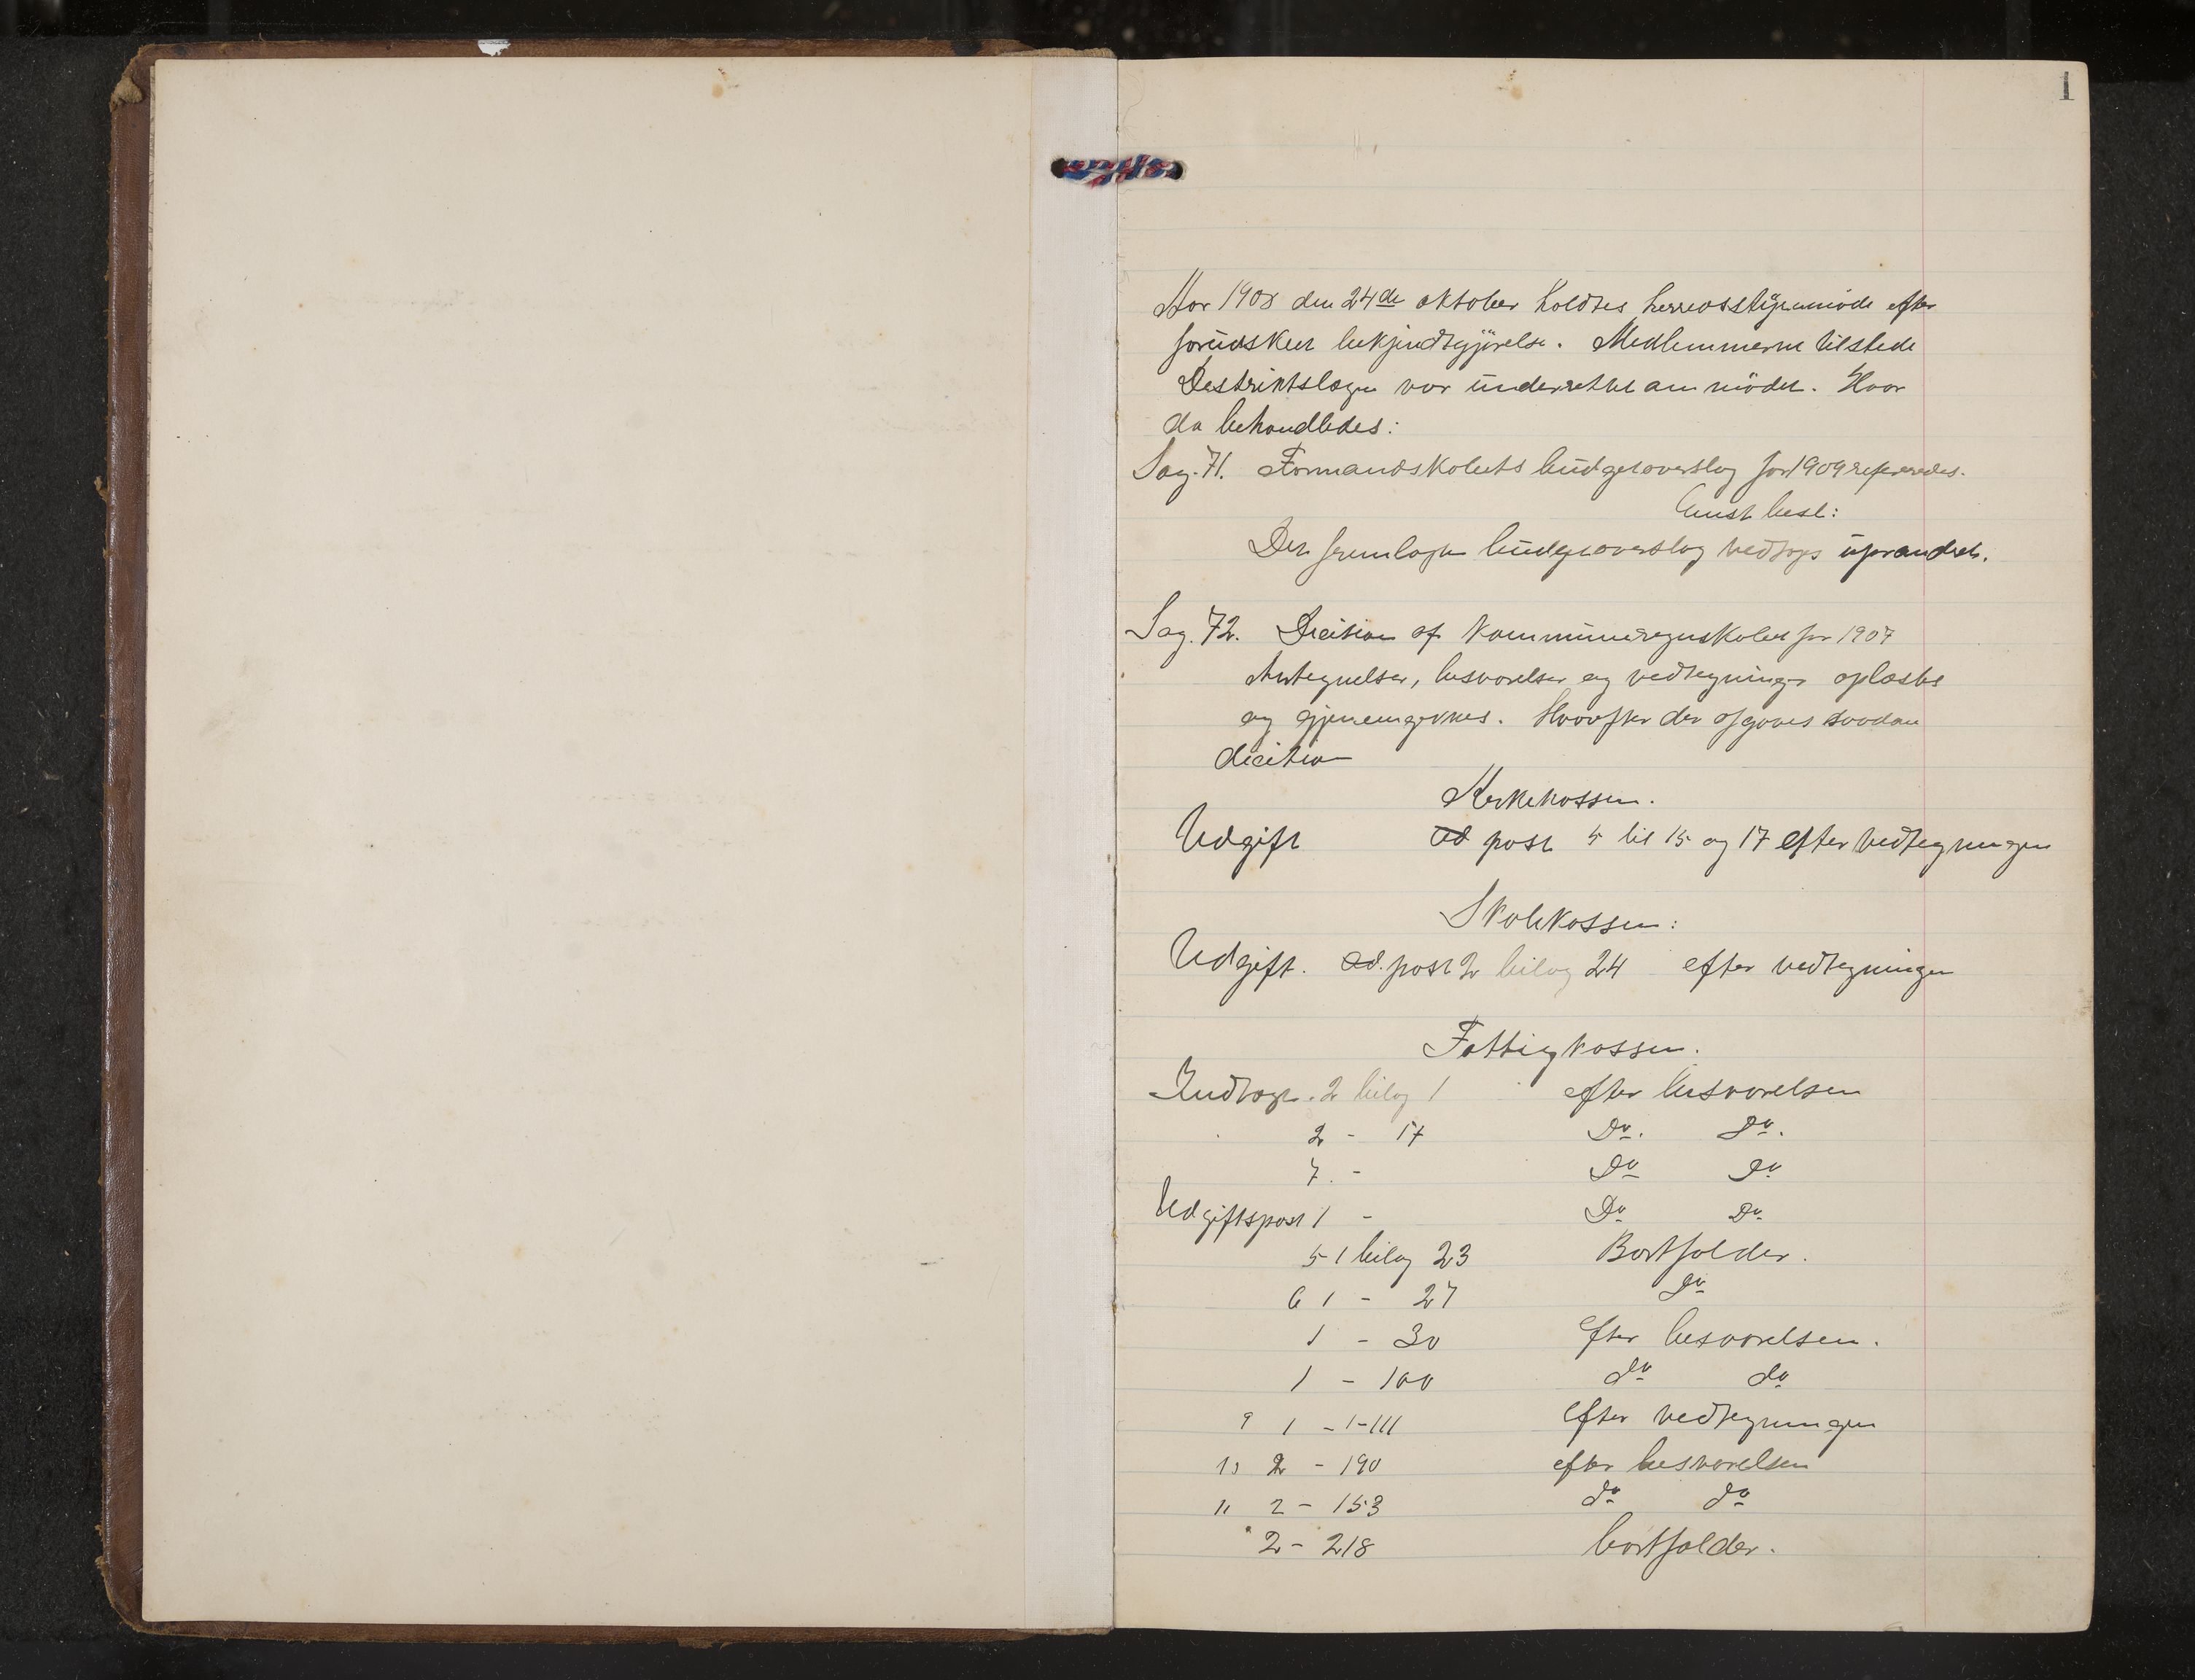 1
Aar 1908 den 24de oktober holdtes herredsstyremøde efter
forudskut bekjendtgjørelse. Medlemmerne tilstede
Destriktslægen var underrettet om mødet. Hvor
da behandledes:
Sag. 71. Formandskabets budgetoverslag for 1909 refereredes.
Enst besl:
Det fremlagte budgetoverslag vedtages uforandret.
Sag. 72. Decition af Kommuneregnskabet for 1907
Antegnelser, besvarelser og vedtegninger oplæstes
og gjennemgikkes. Hvorefter der afgaves saadan
decition
Kirkekassen.
Udgift ad post 5 til 15 og 17 efter vedtegningen
Skolekassen:
Udgift. ad. post 2 bilag 24 efter vedtegningen
Fattigkassen.
Indtægt. 2 bilag 1 efter besvarelsen
2 - 17 Do. Do.
7. - Do Do
Udgiftspost 1 - Do Do
5 1 bilag 23 Bortfalder.
6 1 - 27 Do
1 - 30 Efter besvarelsen.
1 - 100 do do
9 1 - 1-111 Efter vedtegningen
10 2 - 190 efter besvarelsen
11 2 - 153 do do
" 2 - 218 bortfalder.